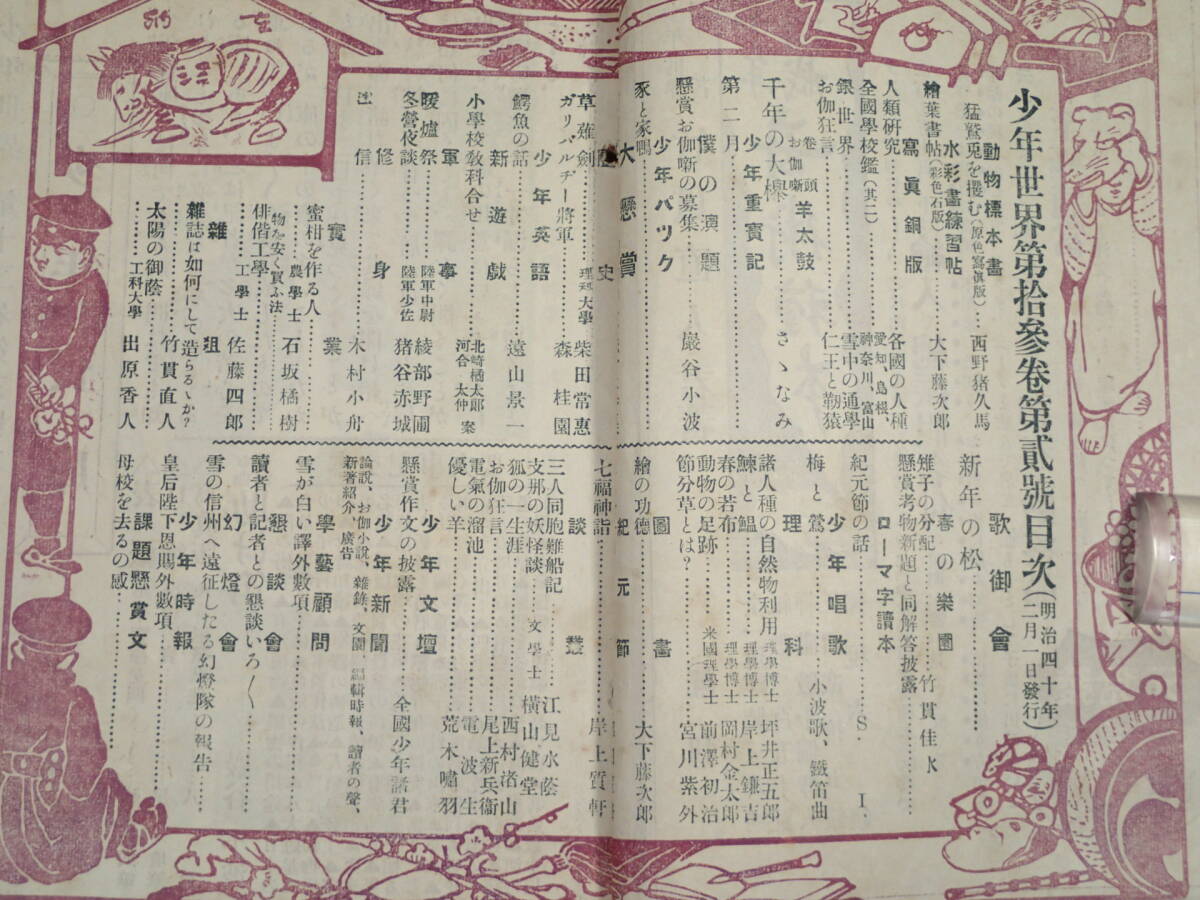 少年世界第拾參卷第貳號目次(明治四十年二月一日發行)
動物標本畫
猛鷲兎を攫む(原色寫眞版)……西野猪久馬
水彩畫練習帖
繪葉書帖(彩色石版)……大下藤次郎
寫眞銅版
人類研究……各國の人種
全國學校鑑(其二)……愛知、島根、神奈川、富山
銀世界……雪中の通學
お伽狂言……仁王と靱猿
卷頭お伽噺 羊太鼓
千年の大欅……さゝなみ
少年重寶記
第二月
僕の演題
懸賞お伽噺の募集……巖谷小波
少年パツク
豕と家鴨
大懸賞
歷史
草薙劍……理科大學 柴田常惠
ガリバルヂー將軍……森桂園
少年英語
鰐魚の話……遠山景一
新遊戲
小學校敎科合せ……北崎橘太郎 河合太仲 案
軍事
暖爐祭……陸軍中尉 綾部野圃
冬營夜談……陸軍少佐 猪谷赤城
修身
信……木村小舟
實業
蜜柑を作る人……農學士 石坂橘樹
物を安く買ふ法
俳偕工學……工學士 佐藤四郎
雜俎
雜誌は如何にして造らるゝか?……竹貫直人
太陽の御蔭……工科大學 出原香人
歌御會
新年の松
春の樂園
雉子の分配……竹貫佳水
懸賞考物新題と同解答披露
ローマ字讀本
紀元節の話……S. I.
少年唱歌
梅と鶯……小波歌、鐵笛曲
理科
諸人種の自然物利用……理學博士 坪井正五郎
鰊と鰮……理學博士 岸上鎌吉
春の若布……理學博士 岡村金太郎
動物の足跡……米國理學士 前澤初治
節分草とは?……宮川紫外
圖畫
繪の功德……大下藤次郎
紀元節
七福神詣……岸上質軒
談叢
三人同胞難船記……江見水蔭
支那の妖怪談……文學士 橫山健堂
狐の一生涯……西村渚山
お伽狂言……尾上新兵衞
電氣の溜池……電波生
優しい羊……荒木嘯羽
少年文壇
懸賞作文の披露……全國少年諸君
少年新聞
論說、お伽小說、雜錄、文園、編輯時報、讀者の聲、新著紹介、廣告
學藝顧問
雪が白い譯外數項
懇談會
讀者と記者との懇談いろ〱
幻燈會
雪の信州へ遠征したる幻燈隊の報告
少年時報
皇后陛下恩賜外數項
課題懸賞文
母校を去るの感